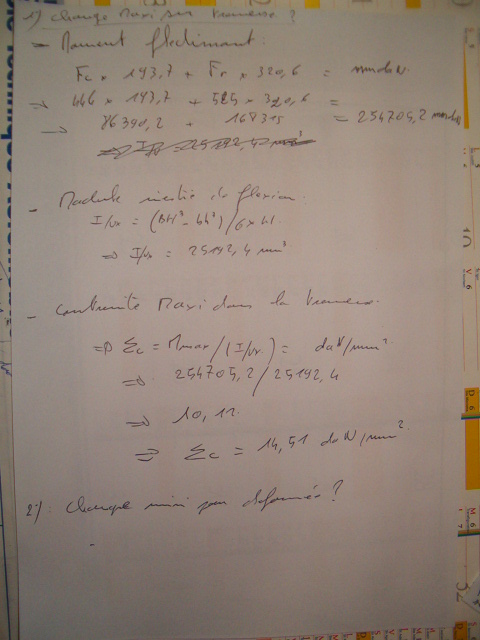 1) charge Maxi sur traverse ?
- Moment fléchissant :
Fc x 193,7 + Fr x 320,6 = mmdaN
=> 446 x 193,7 + 525 x 320,6 =
-> 86390,2 + 168315 = 254705,2 mmdaN
=> I/vx = 25192,4 mm³
- Module inertie de flexion
I/vx = (BH³ - bh³) / 6 x H
=> I/vx = 25192,4 mm³
- Contrainte Maxi dans la traverse
=> Σc = Mmax / (I/vx) = daN/mm²
=> 254705,2 / 25192,4
=> 10,11
=> Σc = 14,51 daN/mm²
2) Charge mini pour déformée ?